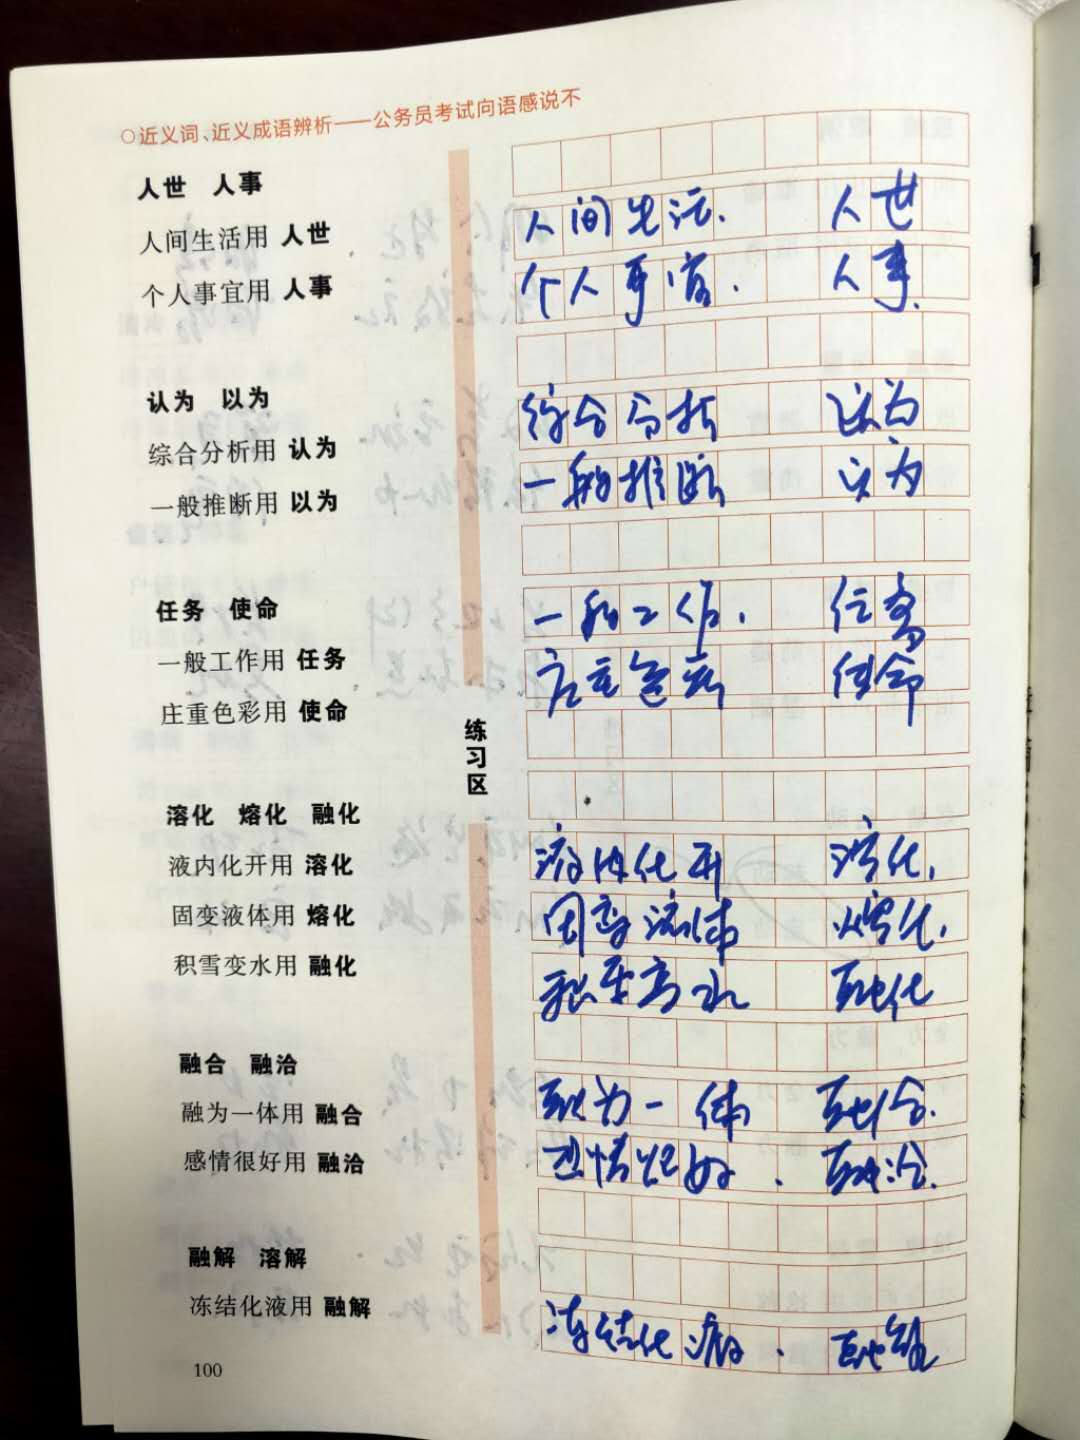 ○近义词、近义成语辨析——公务员考试向语感说不
人世 人事
人间生活用 人世
个人事宜用 人事
认为 以为
综合分析用 认为
一般推断用 以为
任务 使命
一般工作用 任务
庄重色彩用 使命
溶化 熔化 融化
液内化开用 溶化
固变液体用 熔化
积雪变水用 融化
融合 融洽
融为一体用 融合
感情很好用 融洽
融解 溶解
冻结化液用 融解
100
练习区
人间生活. 人世
个人事宜. 人事.
综合分析 认为
一般推断 以为
一般工作. 任务
庄重色彩 使命
液体化开 溶化.
固变液体 熔化.
积雪变水 融化
融为一体 融合.
感情很好. 融洽.
冻结化液. 融解